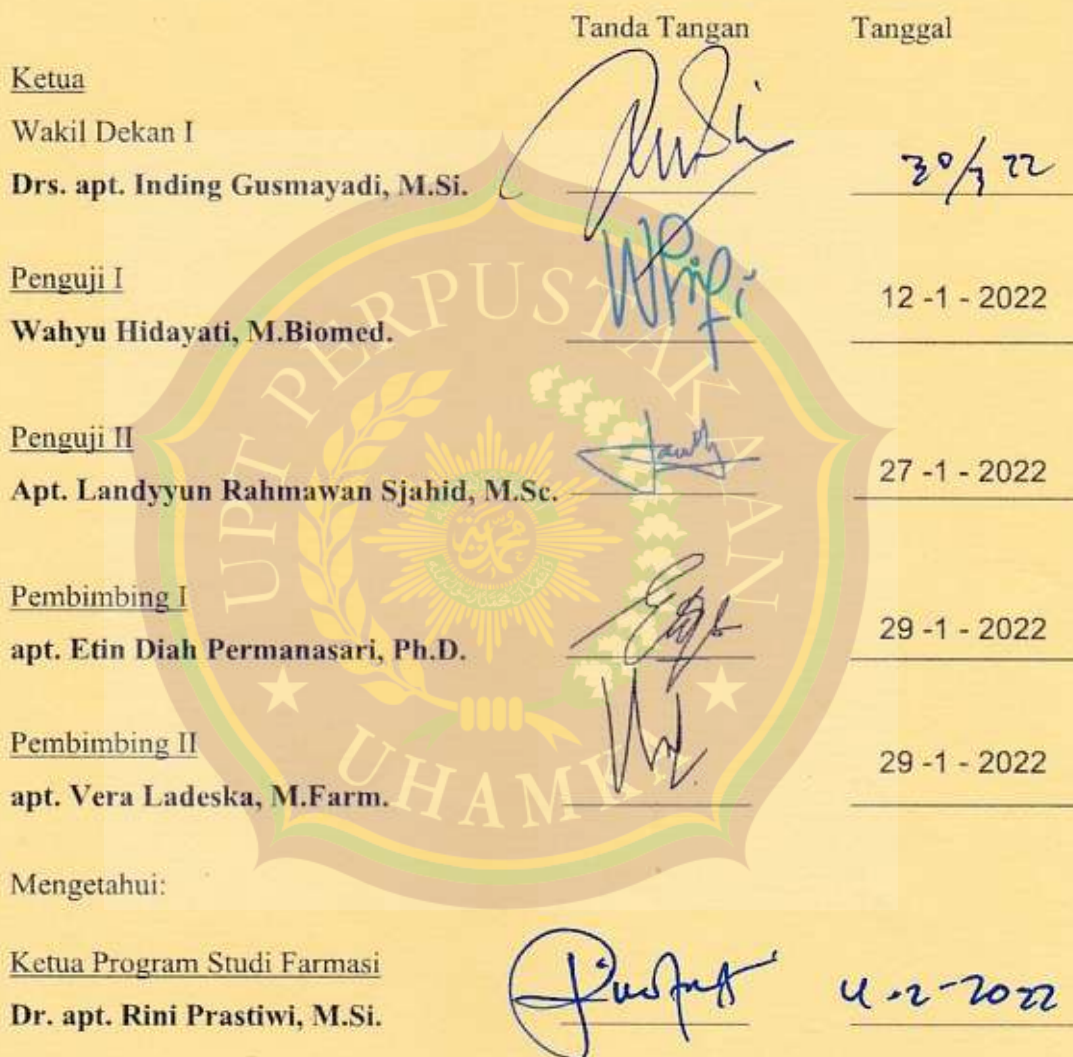 Tanda Tangan Tanggal
Ketua
Wakil Dekan I
Drs. apt. Inding Gusmayadi, M.Si. 30/3 22
Penguji I
Wahyu Hidayati, M.Biomed. 12 -1 - 2022
Penguji II
Apt. Landyyun Rahmawan Sjahid, M.Sc. 27 -1 - 2022
Pembimbing I
apt. Etin Diah Permanasari, Ph.D. 29 -1 - 2022
Pembimbing II
apt. Vera Ladeska, M.Farm. 29 -1 - 2022
Mengetahui:
Ketua Program Studi Farmasi
Dr. apt. Rini Prastiwi, M.Si. 4 -2-2022
UPT PERPUSTAKAAN
UHAMKA